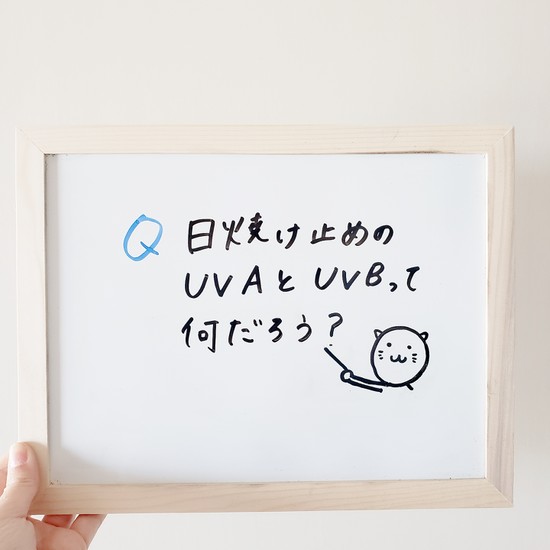 Q 日焼け止めの
UVAとUVBって
何だろう?